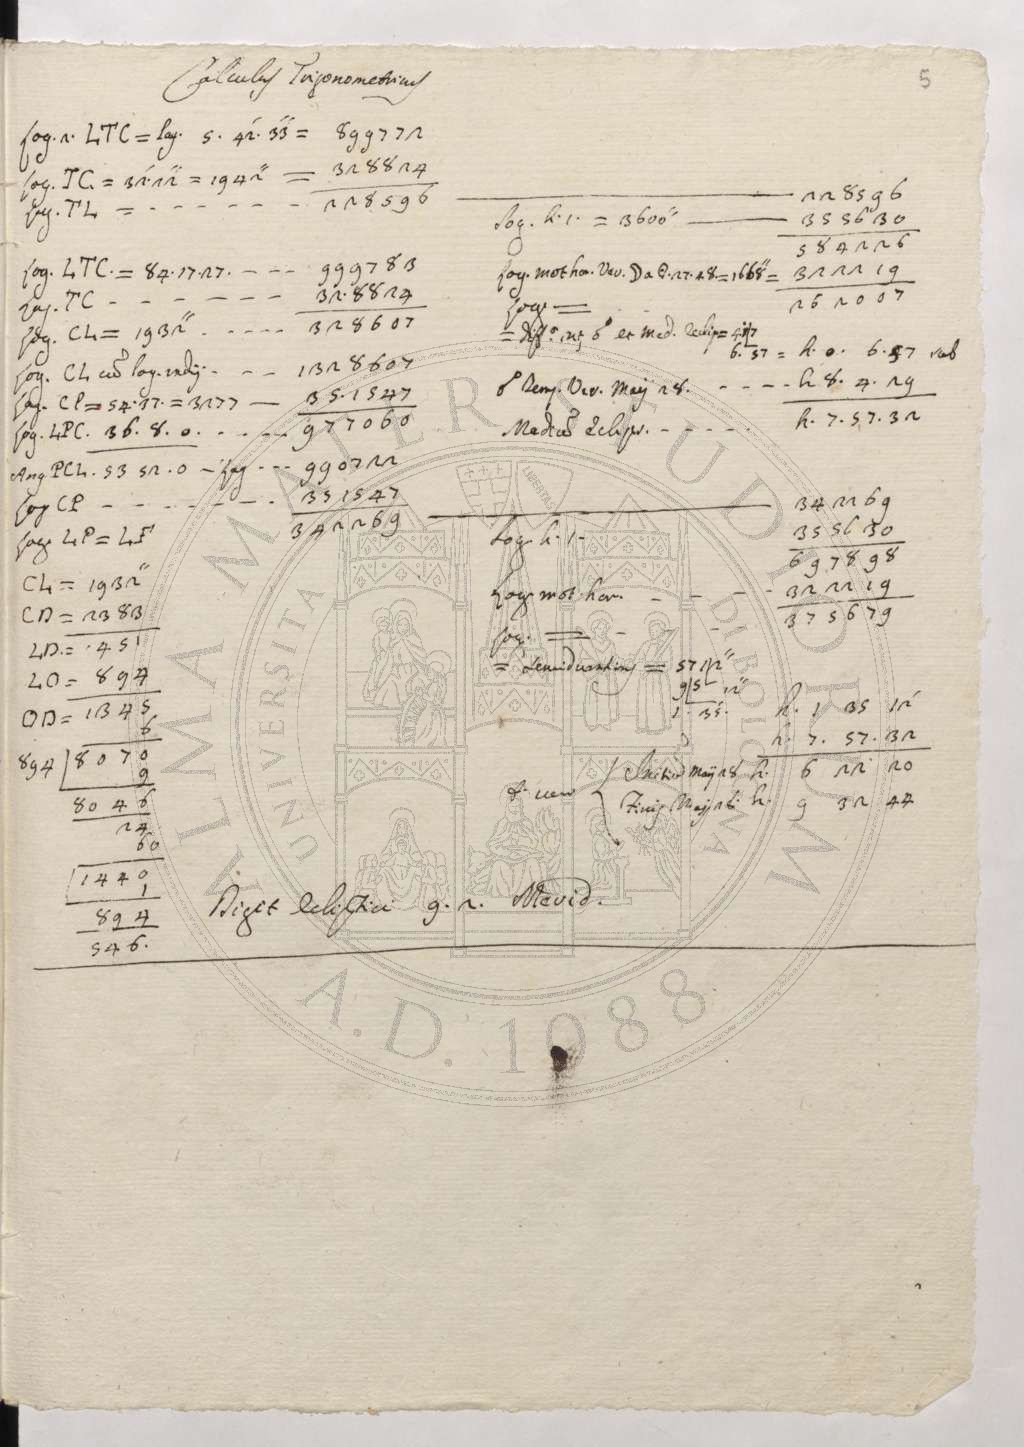 5
Calculus Trigonometricus
Log. s. LTC = log. 5. 42. 33 = 899772
Log. TC. = 32.22" = 1942" = 328824
Log. TL = - - - - - - 228596
Log. LTC. = 84.17.27. - - - 999783
Log. TC - - - - - - 32.8824
Log. CL = 1932" - - - - 328607
Log. CL cū log. indij. - - - 1328607
Log. CP = 54.37. = 3277 — 35.1547
Log. LPC. 36. 8. 0. - - - - - 977060
Ang PCL. 53 52. 0 - Log - - - 990722
Log CP - - - - - - - - 351547
Log. LP = LF 342269
CL = 1932"
CD = 2383
LD. = . 451
LO = 894
OD = 1345.
6
894 8070
9
8046
24
60
1440
1
894
546.
228596
Log. h. 1. = 3600" 355630
584226
Log. mot hor. Ver. D a O. 27. 48. = 1668" = 322219
Log. = 262007
= diff.a int. et med. Eclip = 417
6. 57 = h. 0. 6. 57 sub
Temp. Ver. Maij 28. - - - - h 8. 4. 29
Mediū Eclips. - - - - - h. 7. 57. 32
342269
Log. h. 1. 355630
697898
Log. mot hor. - - - - 322219
Log. = - - 375679
= Semiduration = 5712"
95 12"
1. 35. h. 1 35 12
h. 7. 57. 32
Initiū Maij 28 h. 6 22 20
Finis Maij 28. h. 9 32 44
Digit Ecliptici 9. 2. Merid.
ALMA MATER STUDIORUM
UNIVERSITÀ DI BOLOGNA
LIBERTAS
A.D. 1088